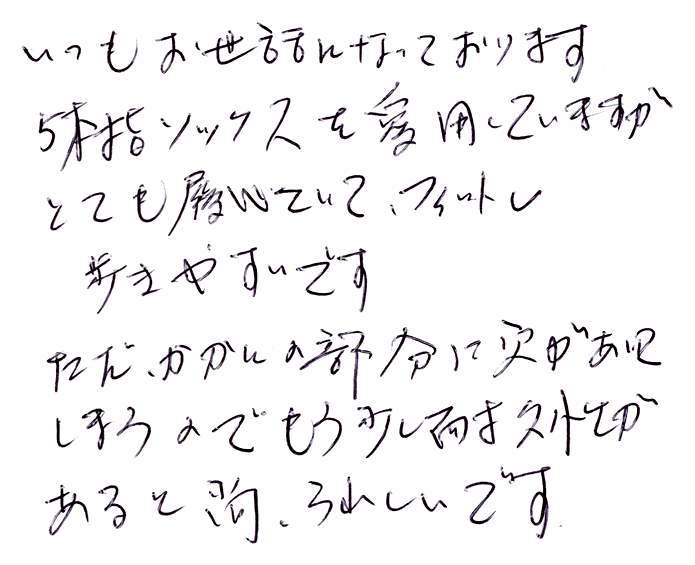 いつもお世話になっております
5本指ソックスを愛用していますが
とても履いていて、フィットし
歩きやすいです
ただ、かかとの部分に穴があいて
しまうのでもう少し耐久性が
あると尚、うれしいです